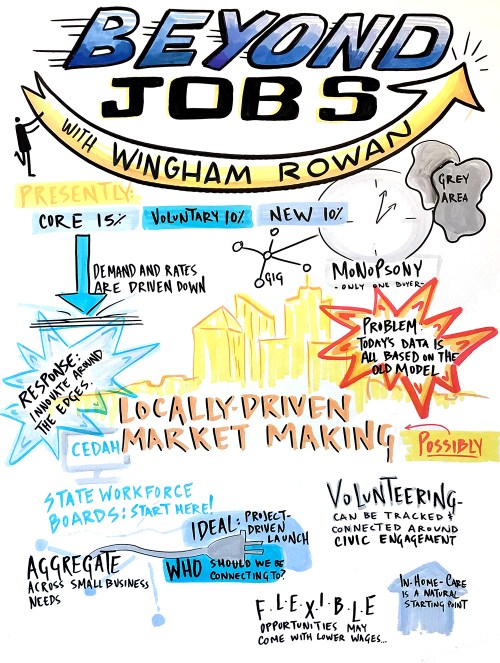 BEYOND
JOBS
WITH WINGHAM ROWAN
GREY
AREA
PRESENTLY:
CORE 15%
VOLUNTARY 10%
NEW 10%
GIG
MONOPSONY
-ONLY ONE BUYER-
DEMAND AND RATES
ARE DRIVEN DOWN
PROBLEM:
TODAY'S DATA IS
ALL BASED ON THE
OLD MODEL.
RESPONSE:
INNOVATE AROUND
THE EDGES.
LOCALLY-DRIVEN
MARKET MAKING
CEDAH
POSSIBLY
STATE WORKFORCE
BOARDS: START HERE!
IDEAL: PROJECT-
DRIVEN
LAUNCH
VOLUNTEERING-
CAN BE TRACKED &
CONNECTED AROUND
CIVIC ENGAGEMENT
AGGREGATE
ACROSS SMALL BUSINESS
NEEDS
WHO SHOULD WE BE
CONNECTING TO?
IN-HOME-CARE
IS A NATURAL
STARTING POINT
F.L.E.X.I.B.L.E
OPPORTUNITIES MAY
COME WITH LOWER WAGES...